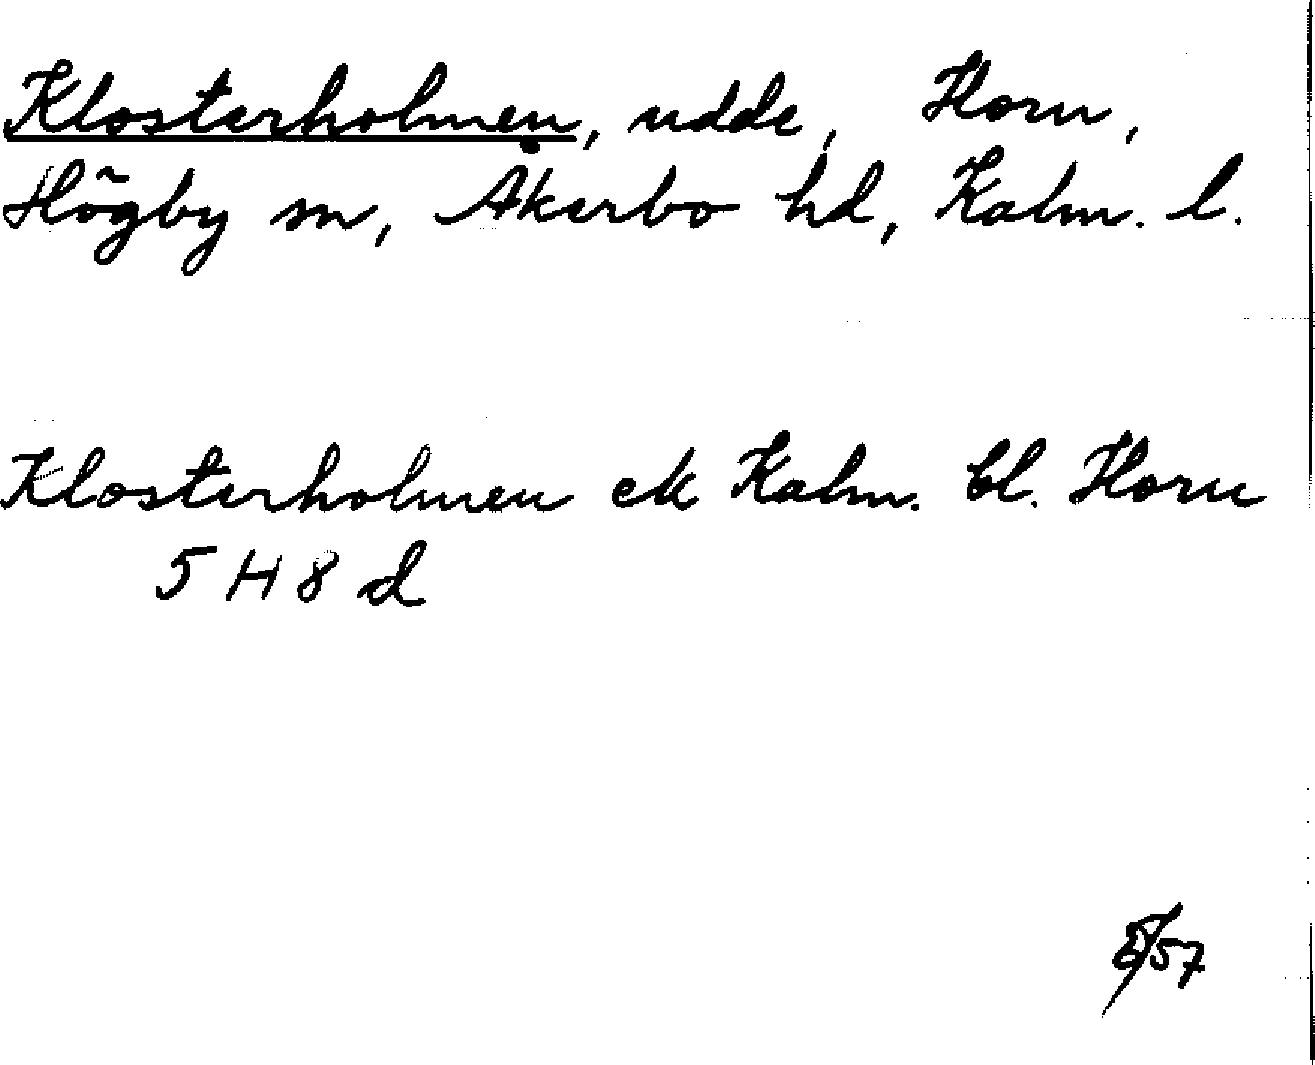 Klosterholmen, udde, Horn,
Högby sn, Åkerbo hd, Kalm. l.
Klosterholmen ek Kalm. bl. Horn
5 H 8 d